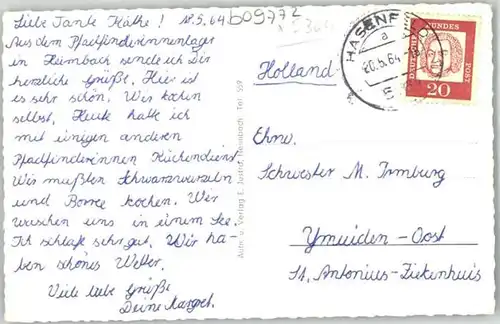 Liebe Tante Käthe! 18.5.64
Aus dem Pfadfinderinnenlager
in Heimbach sende ich Dir
herzliche Grüße. Hier ist
es sehr schön. Wir kochen
selbst. Heute hatte ich
mit einigen anderen
Pfadfinderinnen Küchendienst.
Wir mußten Schwarzwurzeln
und kochen. Wir
waschen uns in einem See.
Ich schlafe sehr gut. Wir ha-
ben schönes Wetter.
Viele liebe Grüße
Deine Margret.
b09772
Holland
HASENFELD
a
20.5.64
DEUTSCHE BUNDESPOST
20
Autn. u. Verlag E. Justen, Heimbach, Tel. 559
Ehrw.
Schwester M. Irmburg
Ymuiden-Oost
St. Antonius-Ziekenhuis